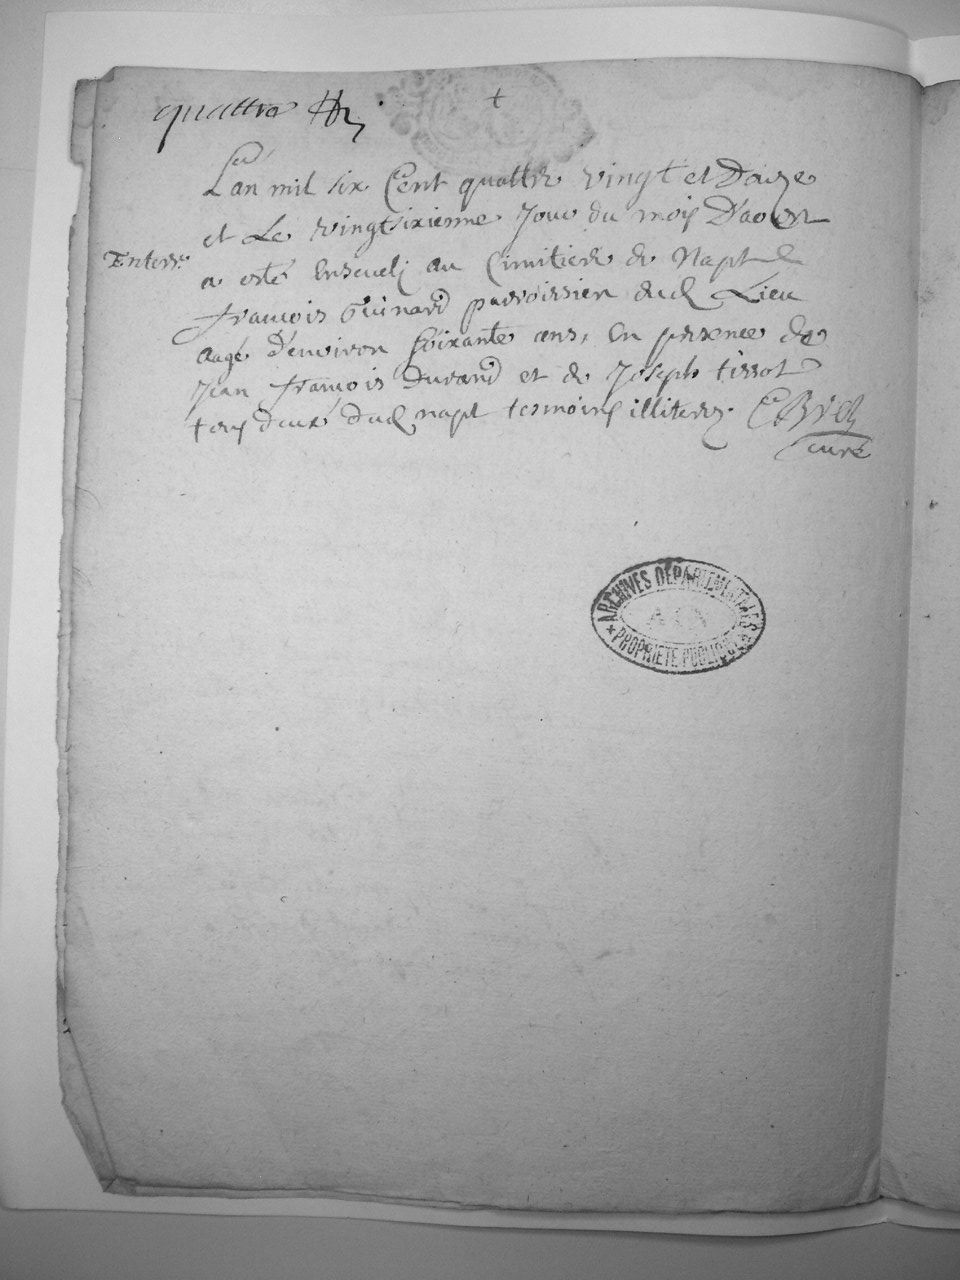 quattre
L'an mil six Cent quattre vingt et Douze
et Le vingtsixienme Jour du mois D'aoust
Enterr.
a esté Enseveli au Cimitiere de Napt
francois Guinard parroissien dud Lieu
aagé d'environ soixante ans, En presence de
Jean francois Durand et de Joseph tissot
tous deux dud napt tesmoins illiteres.
curé
ARCHIVES DÉPARTEMENTALES
AIN
PROPRIÉTÉ PUBLIQUE